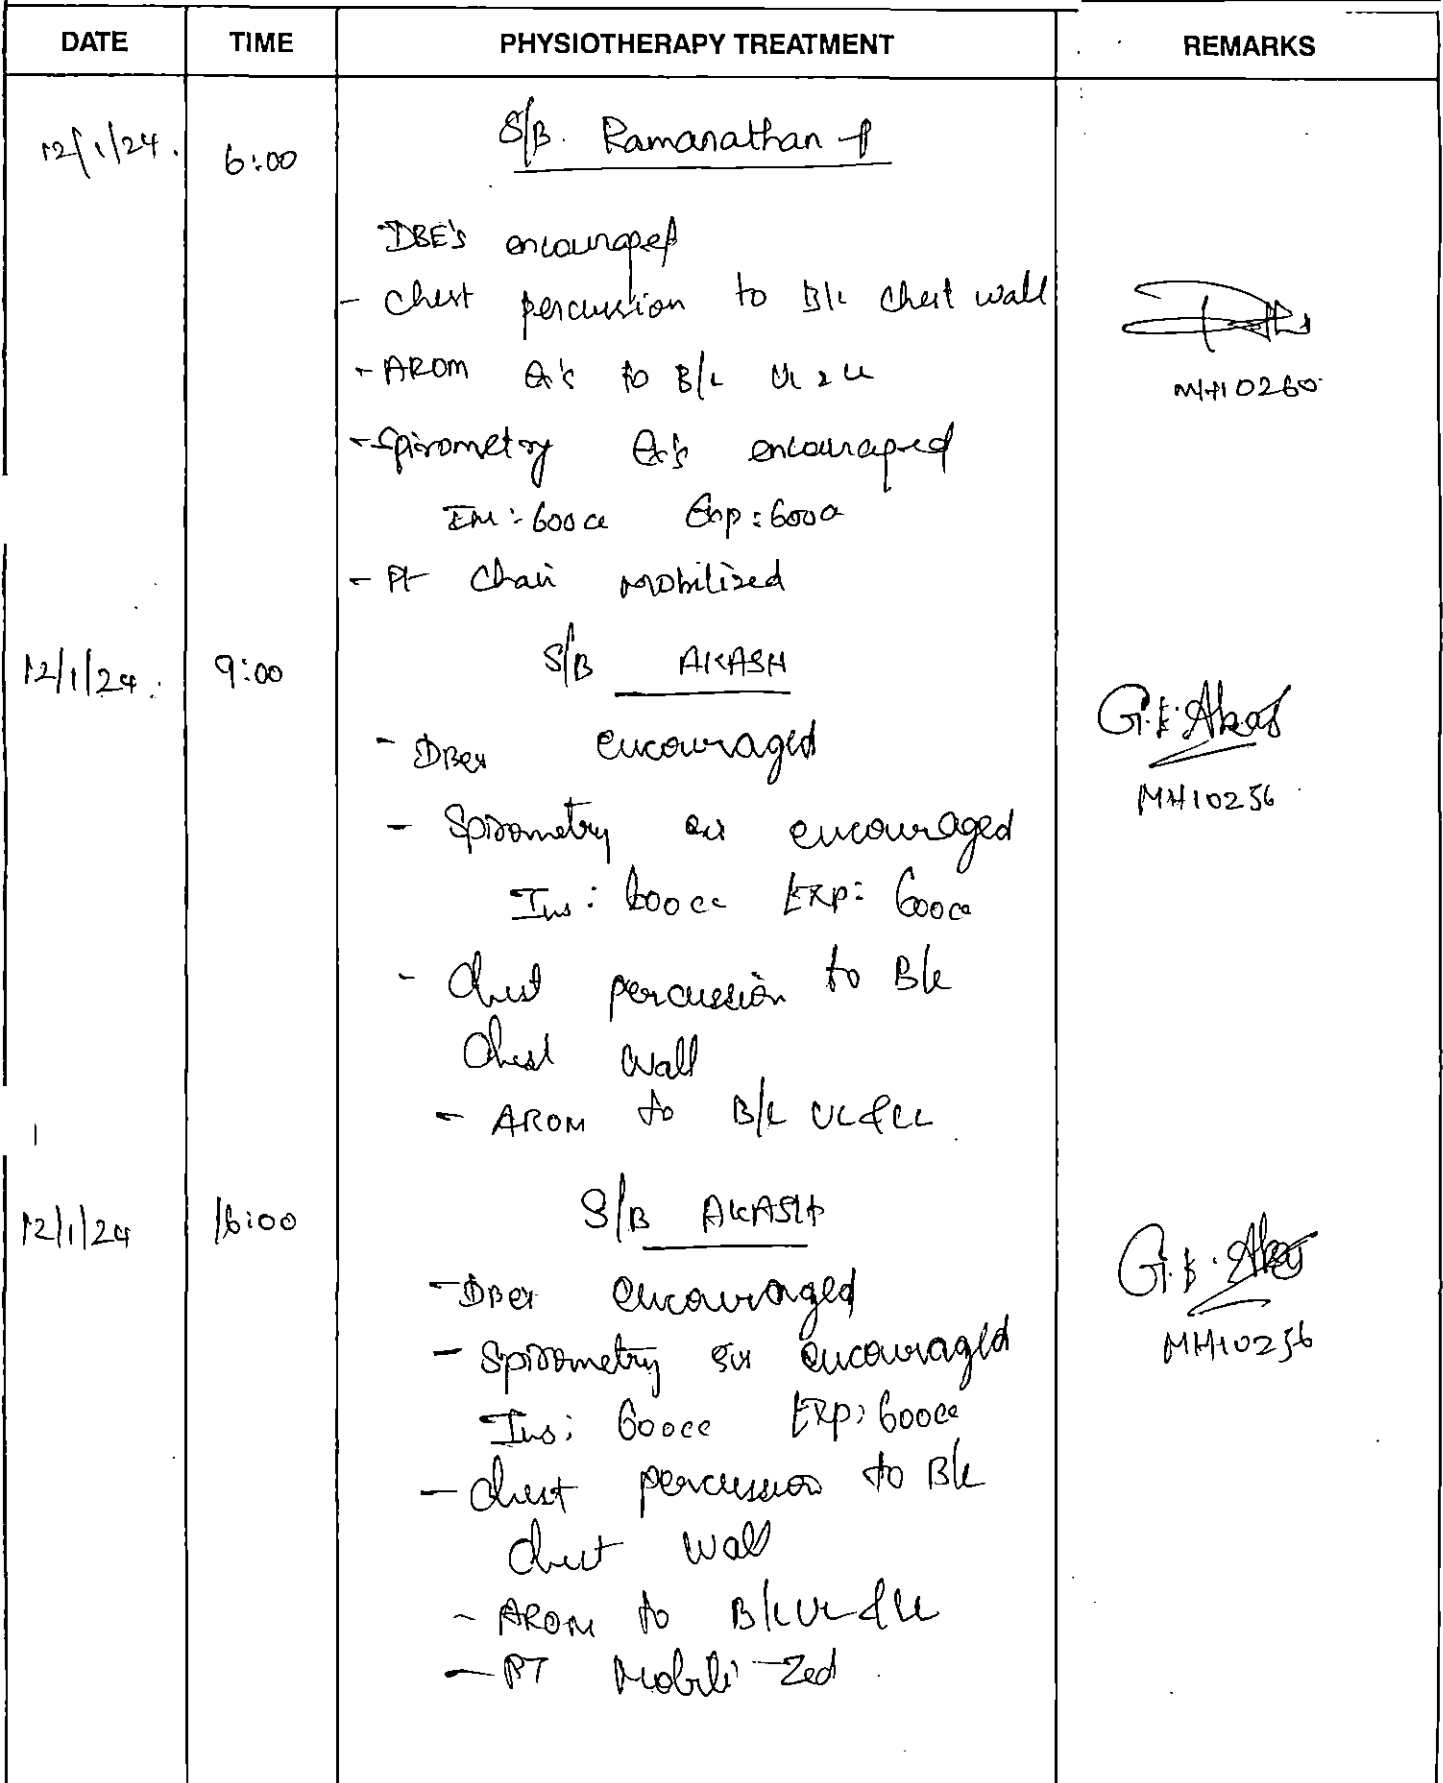 DATE TIME PHYSIOTHERAPY TREATMENT REMARKS
12/1/24. 6:00 S/B. Ramanathan P
DBE's encouraged
- Chest percussion to B/L chest wall
- AROM Ex's to B/L UL & LL
- Spirometry Ex's encouraged
Ins: 600cc Exp: 600cc
MH10260
- Pt Chair mobilized
12/1/24. 9:00 S/B AKASH
G.K. Akash
- DBex encouraged
MH10256
- Spirometry ex encouraged
Ins: 600cc Exp: 600cc
- Chest percussion to B/L
Chest Wall
- AROM to B/L UL & LL
12/1/24 16:00 S/B AKASH
G.K.
- DBex encouraged
- Spirometry ex encouraged
MH10256
Ins: 600cc Exp: 600cc
- Chest percussion to B/L
Chest Wall
- AROM to B/L UL & LL
- PT Mobili-zed